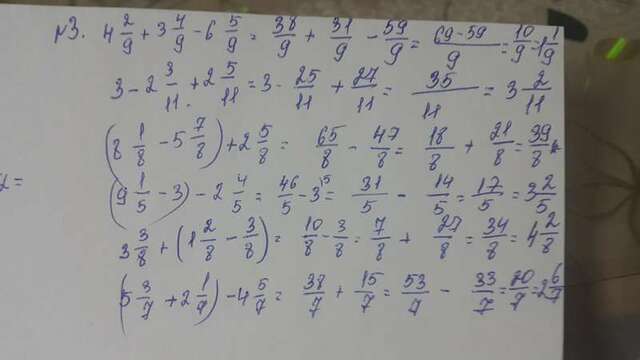 №3. 4 2/9 + 3 4/9 - 6 5/9 = 38/9 + 31/9 - 59/9 = 69-59/9 = 10/9 = 1 1/9
3 - 2 3/11 + 2 5/11 = 3 - 25/11 + 27/11 = 35/11 = 3 2/11
(8 1/8 - 5 7/8) + 2 5/8 = 65/8 - 47/8 = 18/8 + 21/8 = 39/8
(9 1/5 - 3) - 2 4/5 = 46/5 - 3 = 31/5 - 14/5 = 17/5 = 3 2/5
3 3/8 + (1 2/8 - 3/8) = 10/8 - 3/8 = 7/8 + 27/8 = 34/8 = 4 2/8
(5 3/7 + 2 1/7) - 4 5/7 = 38/7 + 15/7 = 53/7 - 33/7 = 20/7 = 2 6/7